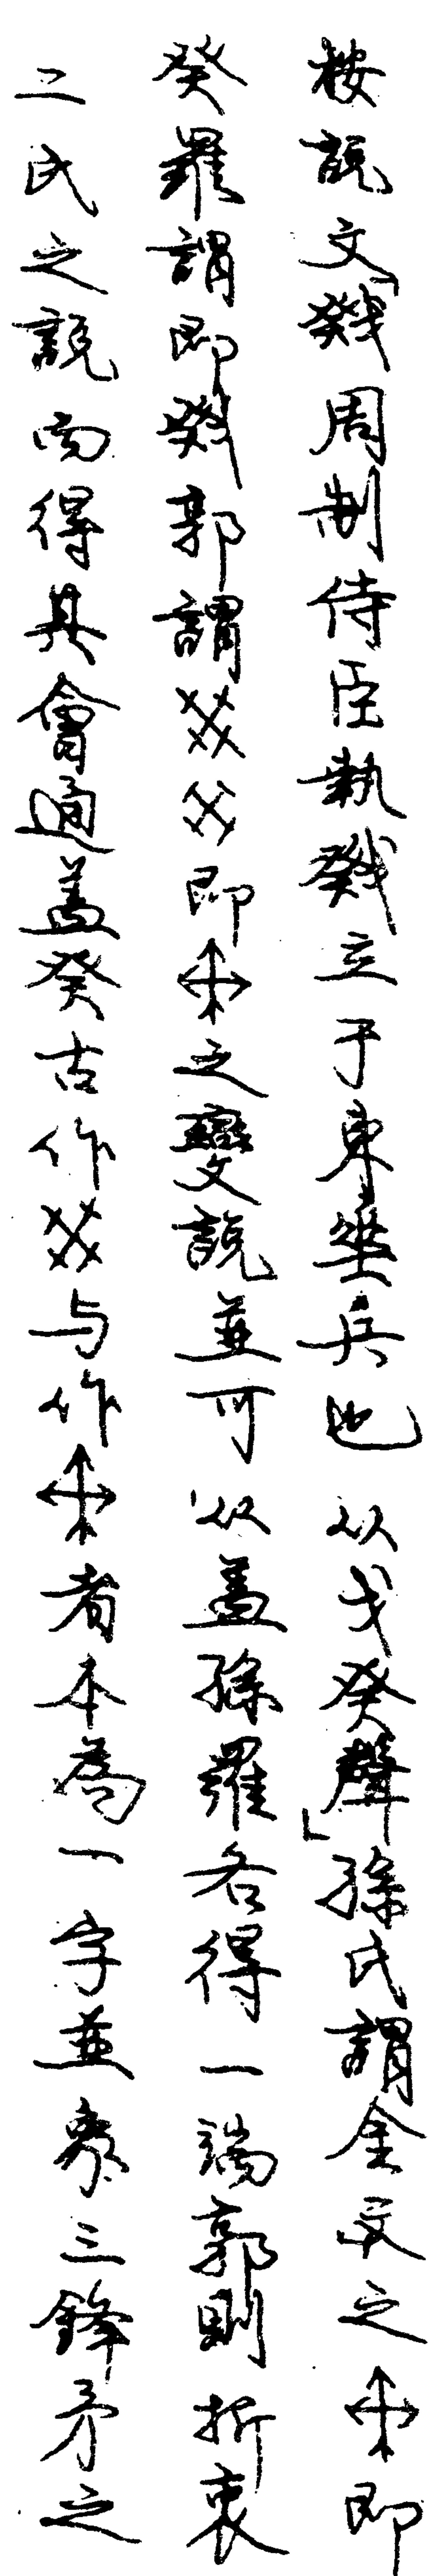 按說文「戣周制侍臣執戣立于東垂兵也　从戈癸聲」孫氏謂金文之即
癸羅謂即戣郭謂即之變說並可从蓋孫羅各得一端郭則折衷
二氏之說而得其會通蓋癸古作与作者本為一字並象三鋒矛之